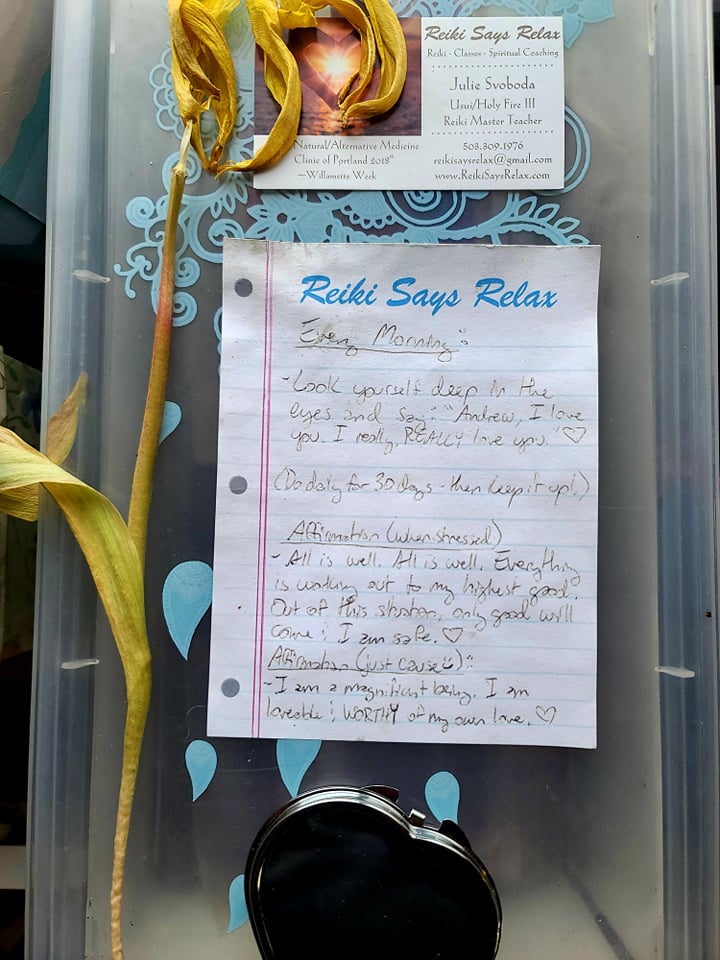 Reiki Says Relax
Reiki - Classes - Spiritual Coaching
Julie Svoboda
Usui/Holy Fire III
Reiki Master Teacher
Natural/Alternative Medicine
Clinic of Portland 2018"
—Willamette Week
503.309.1976
reikisaysrelax@gmail.com
www.ReikiSaysRelax.com
Reiki Says Relax
Every Morning:
- Look yourself deep in the
eyes and say: "Andrew, I love
you. I really, REALLY love you." ♡
(Do daily for 30 days - then keep it up!)
Affirmation (when stressed)
- All is well. All is well. Everything
is working out to my highest good.
Out of this situation, only good will
come; I am safe. ♡
Affirmation (just cause):
- I am a magnificent being. I am
loveable; WORTHY of my own love. ♡